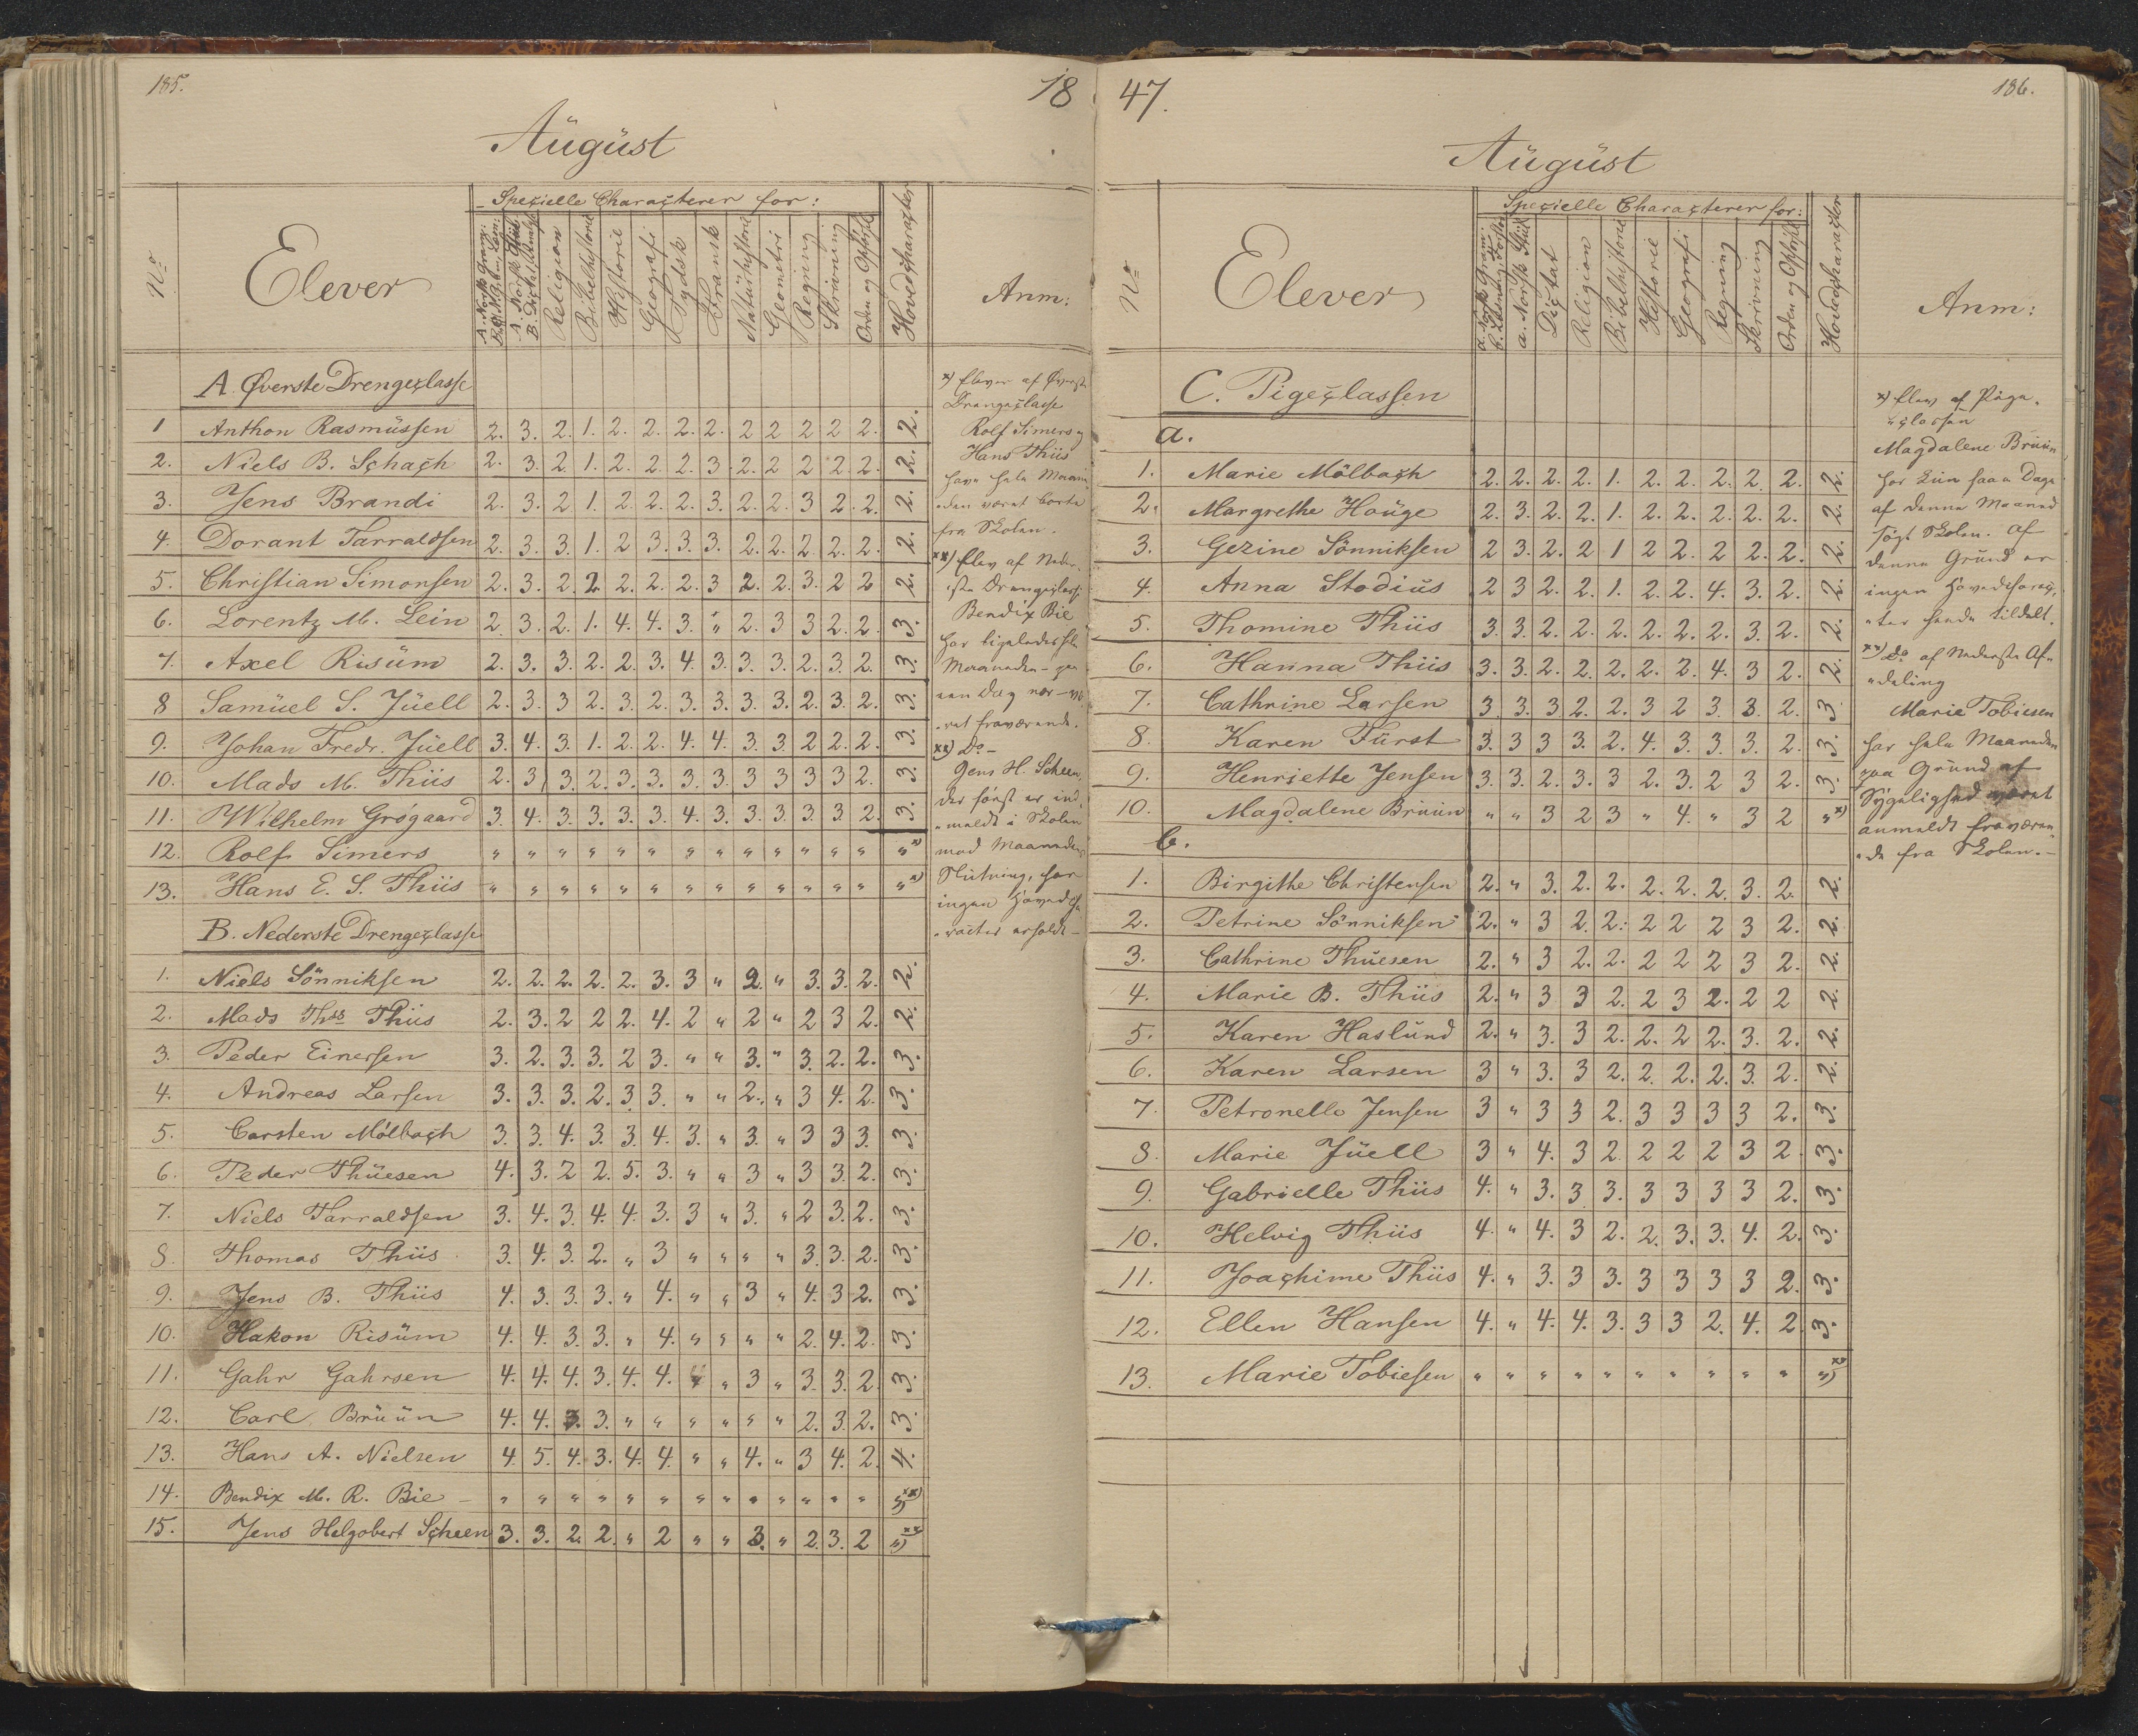 185.
18
August
Specielle Characterer for:
No
Elever
Religion
Bibelhistorie
Historie
Geografi
Tydsk
Fransk
Naturhistorie
Geometri
Regning
Skrivning
Orden og Opførsel
Hovedcharacter
Anm:
A. Øverste Drengeclasse
1 Anthon Rasmussen 2. 3. 2. 1. 2. 2. 2. 2. 2 2 2 2 2. 2.
2. Niels B. Schach 2. 3. 2. 1. 2. 2. 2. 3. 2. 2 2 2. 2. 2.
3. Jens Brandi 2. 3. 2 1. 2. 2. 2. 3. 2. 2. 3 2. 2. 2.
4. Dorant Tarraldsen 2. 3. 3. 1. 2 3. 3. 3. 2. 2. 2. 2. 2. 2.
5. Christian Simonsen 2. 3. 2. 2. 2. 2. 2. 3 2. 2. 3. 2 2 2.
6. Lorentz M. Lein 2. 3. 2. 1. 4. 4. 3. " 2. 3 3 2. 2. 3.
7. Axel Risüm 2. 3. 3. 2. 2. 3. 4. 3. 3. 3. 2. 3. 2. 3.
8 Samuel S. Jüell 2. 3. 3 2. 3. 2. 3. 3. 3. 3. 2. 3. 2. 3.
9. Johan Fredr. Jüell 3. 4. 3. 1. 2. 2. 4. 4. 3. 3. 2 2. 2. 3.
10. Mads M. Thiis 2. 3. 3. 2. 3. 3. 3. 3. 3 3 3 3 2. 3.
11. Wilhelm Grógaard 3. 4. 3. 3. 3. 3. 4. 3. 3. 3. 3. 3 2. 3.
12. Rolf Simers " " " " " " " " " " " " " "x)
13. Hans E. S. Thiis " " " " " " " " " " " " " "x)
B. Nederste Drengeclasse
1. Niels Sönniksen 2. 2. 2. 2. 2. 3. 3 " 2. " 3. 3. 2. 2.
2. Mads Thss Thiis 2. 3. 2 2 2. 4. 2 " 2 " 2 3 2. 2.
3. Peder Einersen 3. 2. 3. 3. 2 3. " " 3. " 3. 2. 2. 3.
4. Andreas Larsen 3. 3. 3. 2. 3. 3. " " 2. " 3 4. 2. 3.
5. Carsten Mölbach 3. 3. 4. 3. 3. 4. 3. " 3. " 3 3 3. 3.
6. Peder Thüesen 4. 3. 2 2. 5. 3. " " 3 " 3 3. 2. 3.
7. Niels Tarraldsen 3. 4. 3. 4. 4. 3. 3 " 3. " 2 3. 2. 3.
8. Thomas Thiis 3. 4. 3. 2. " 3 " " " " 3. 3. 2. 3.
9. Jens B. Thiis 4. 3. 3. 3. " 4. " " 3 " 4. 3 2. 3.
10. Hakon Risüm 4. 4. 3. 3. " 4. " " " " 2. 4. 2. 3.
11. Gahr Gahrsen 4. 4. 4. 3. 4. 4. 4 " 3 " 3. 3. 2. 3.
12. Carl Brüün 4. 4. 3. 3. " " " " " " 2. 3. 2. 3.
13. Hans A. Nielsen 4. 5. 4. 3. 4. 4. " " 4. " 3 4. 2. 4.
14. Bendix M. R. Bie " " " " " " " " " " " " " "xx)
15. Jens Helgobert Scheen 3. 3. 2. 2. " 2 " " 3. " 2. 3. 2 "xx)
x) Elever af Øverste
Drengeclasse
Rolf Simers og
Hans Thiis
have hele Maane
den været borte
fra Skolen.
xx) Elev af Neder-
ste Drengeclasse
Bendix Bie
har ligeledes hele
Maaneden
een Dag nær
ret fraværende.
xx) Do
Jens H. Scheen,
der først er ind
meldt i Skolen
mod Maanedens
Slutning, har
ingen Hovedcha
racter erholdt
47.
186.
August
Specielle Characterer for:
No
Elever
a. Norsk Gram:
a. Norsk Stiil
Dictat
Religion
Bibelhistorie
Historie
Geografi
Regning
Skrivning
Orden og Opførsel
Hovedcharacter
Anm:
C. Pigeclassen
a.
1. Marie Mölbach 2. 2. 2. 2. 1. 2. 2. 2. 2. 2. 2.
2. Margrethe Houge 2. 3. 2. 2. 1. 2. 2. 2. 2. 2. 2.
3. Gezine Sönniksen 2 3. 2. 2 1 2 2. 2 2. 2. 2.
4. Anna Stodius 2 3 2. 2. 1. 2. 2. 4. 3. 2. 2.
5. Thomine Thiis 3. 3. 2. 2. 2. 2. 2. 2. 3. 2. 2.
6. Hanna Thiis 3. 3. 2. 2. 2. 2. 2. 4. 3 2. 2.
7. Cathrine Larsen 3. 3. 3 2. 2. 3 2 3. 3. 2. 3.
8. Karen Fürst 3. 3 3 3. 2. 4. 3. 3. 3. 2. 3.
9. Henriette Jensen 3. 3. 2. 3. 3 2. 3. 2 3 2. 3.
10. Magdalene Brüün " " 3 2 3 " 4. " 3 2 "x)
b.
1. Birgithe Christensen 2. " 3. 2. 2. 2. 2. 2. 3. 2. 2.
2. Petrine Sönniksen 2. " 3 2. 2. 2 2 2 3 2. 2.
3. Cathrine Thüesen 2. " 3 2. 2. 2 2 2 3 2. 2.
4. Marie B. Thiis 2. " 3 3 2. 2 3 2. 2 2 2.
5. Karen Haslünd 2. " 3. 3 2. 2. 2 2. 3. 2. 2.
6. Karen Larsen 3 " 3. 3 2. 2. 2. 2. 3. 2. 2.
7. Petronelle Jensen 3 " 3 3 2. 3 3 3 3 2. 3.
8. Marie Jüell 3 " 4. 3 2. 2 2 2 3 2. 3.
9. Gabrielle Thiis 4. " 3. 3 3. 3 3 3 3 2. 3.
10. Helvig Thiis 4. " 4. 3 2. 2. 3. 3. 4. 2. 3.
11. Joachime Thiis 4. " 3. 3 3. 3 3 3 3 2. 3.
12. Ellen Hansen 4. " 4. 4. 3. 3 3 2. 4. 2. 3.
13. Marie Tobiesen " " " " " " " " " " "xx)
x) Elev af Pige
classen
Magdalene Brüün
har kun faae Dage
af denne Maaned
søgt Skolen. Af
denne Grund er
ingen Hovedcharac
ter hende tildelt.
xx) Do af Nederste Af
deling
Marie Tobiesen
har hele Maaneden
paa Grund af
Sygelighed været
anmeldt fraværen
de fra Skolen.